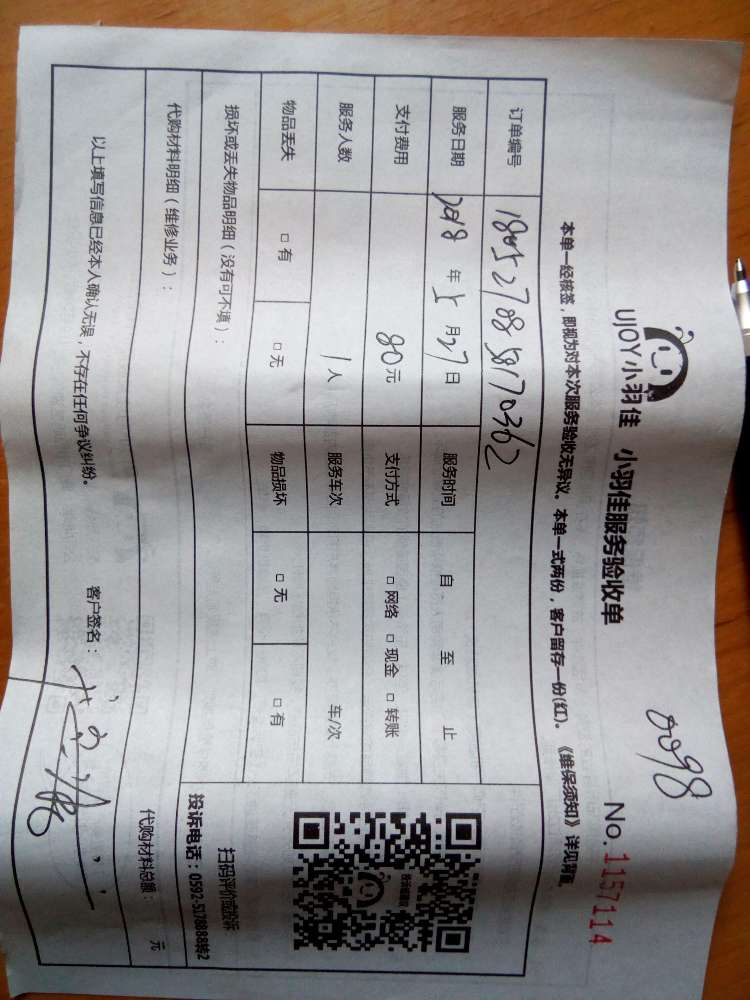 0098
UJOY小羽佳 小羽佳服务验收单 No.1157114
本单一经核签，即视为对本次服务验收无异议。本单一式两份，客户留存一份(红)。《维保须知》详见背面
订单编号 1805270858170362
服务日期 2018 年 5 月 27 日 服务时间 自 至 止
支付费用 80元 支付方式 □ 网络 □ 现金 □ 转账
服务人数 1人 服务车次 车/次
物品丢失 □ 有 □ 无 物品损坏 □ 无 □ 有
损坏或丢失物品明细（没有可不填）：
扫码评价或投诉
投诉电话：0592-5178888转2
代购材料明细（维修业务）： 代购材料总额： 元
以上填写信息已经本人确认无误，不存在任何争议纠纷。 客户签名：